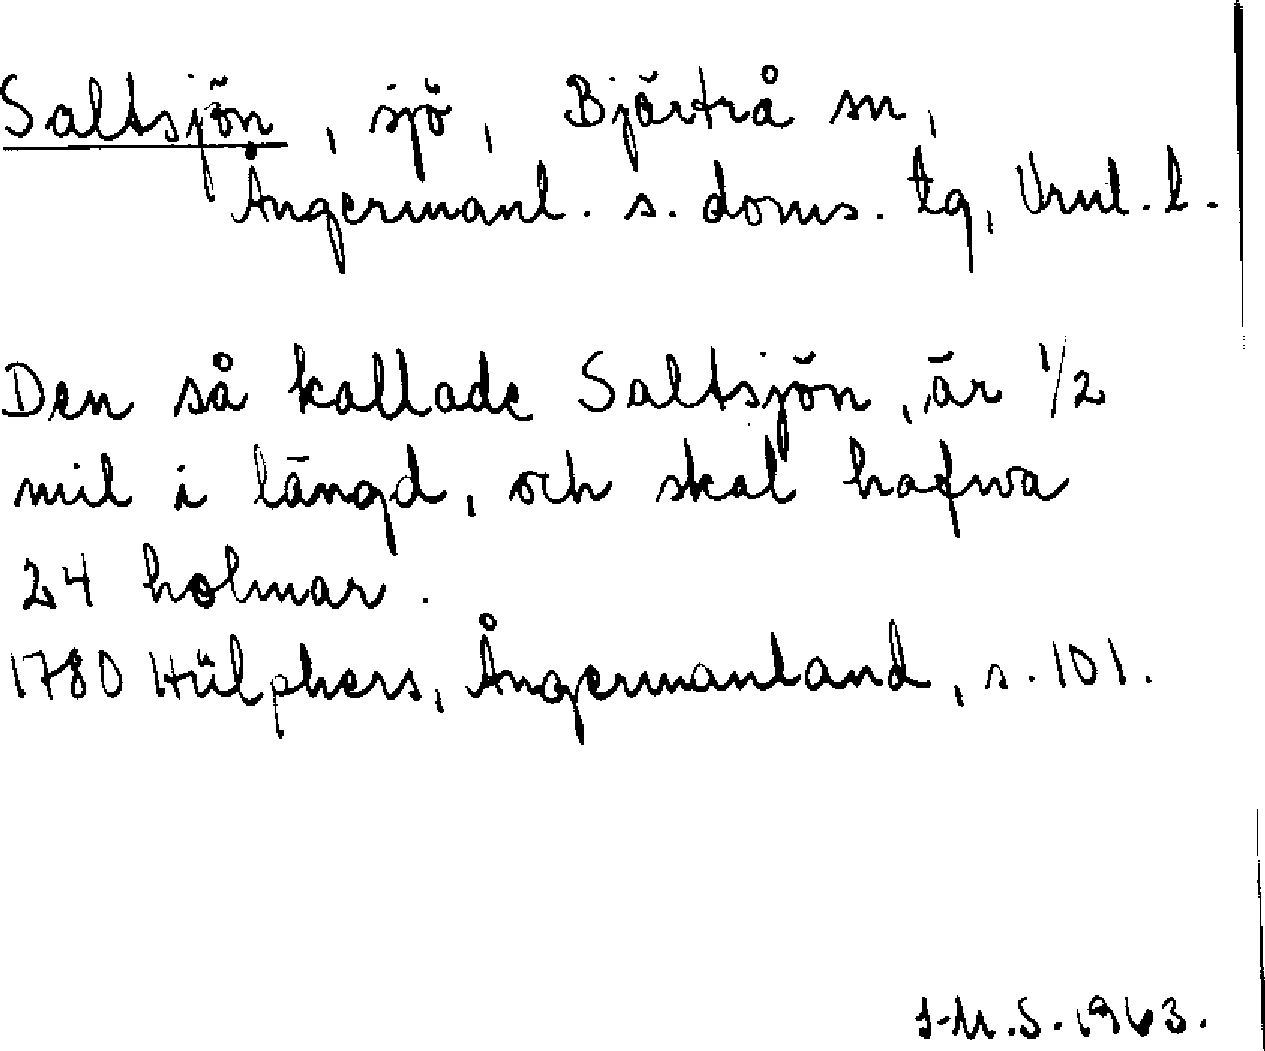 Saltsjön, sjö, Bjärtrå sn,
Ångermanl. s. doms. tg, Vrnl. l.
Den så kallade Saltsjön, är 1/2
mil i längd, och skal hafwa
24 holmar.
1780 Hülphers, Ångermanland, s. 101.
I-M.S. 1963.